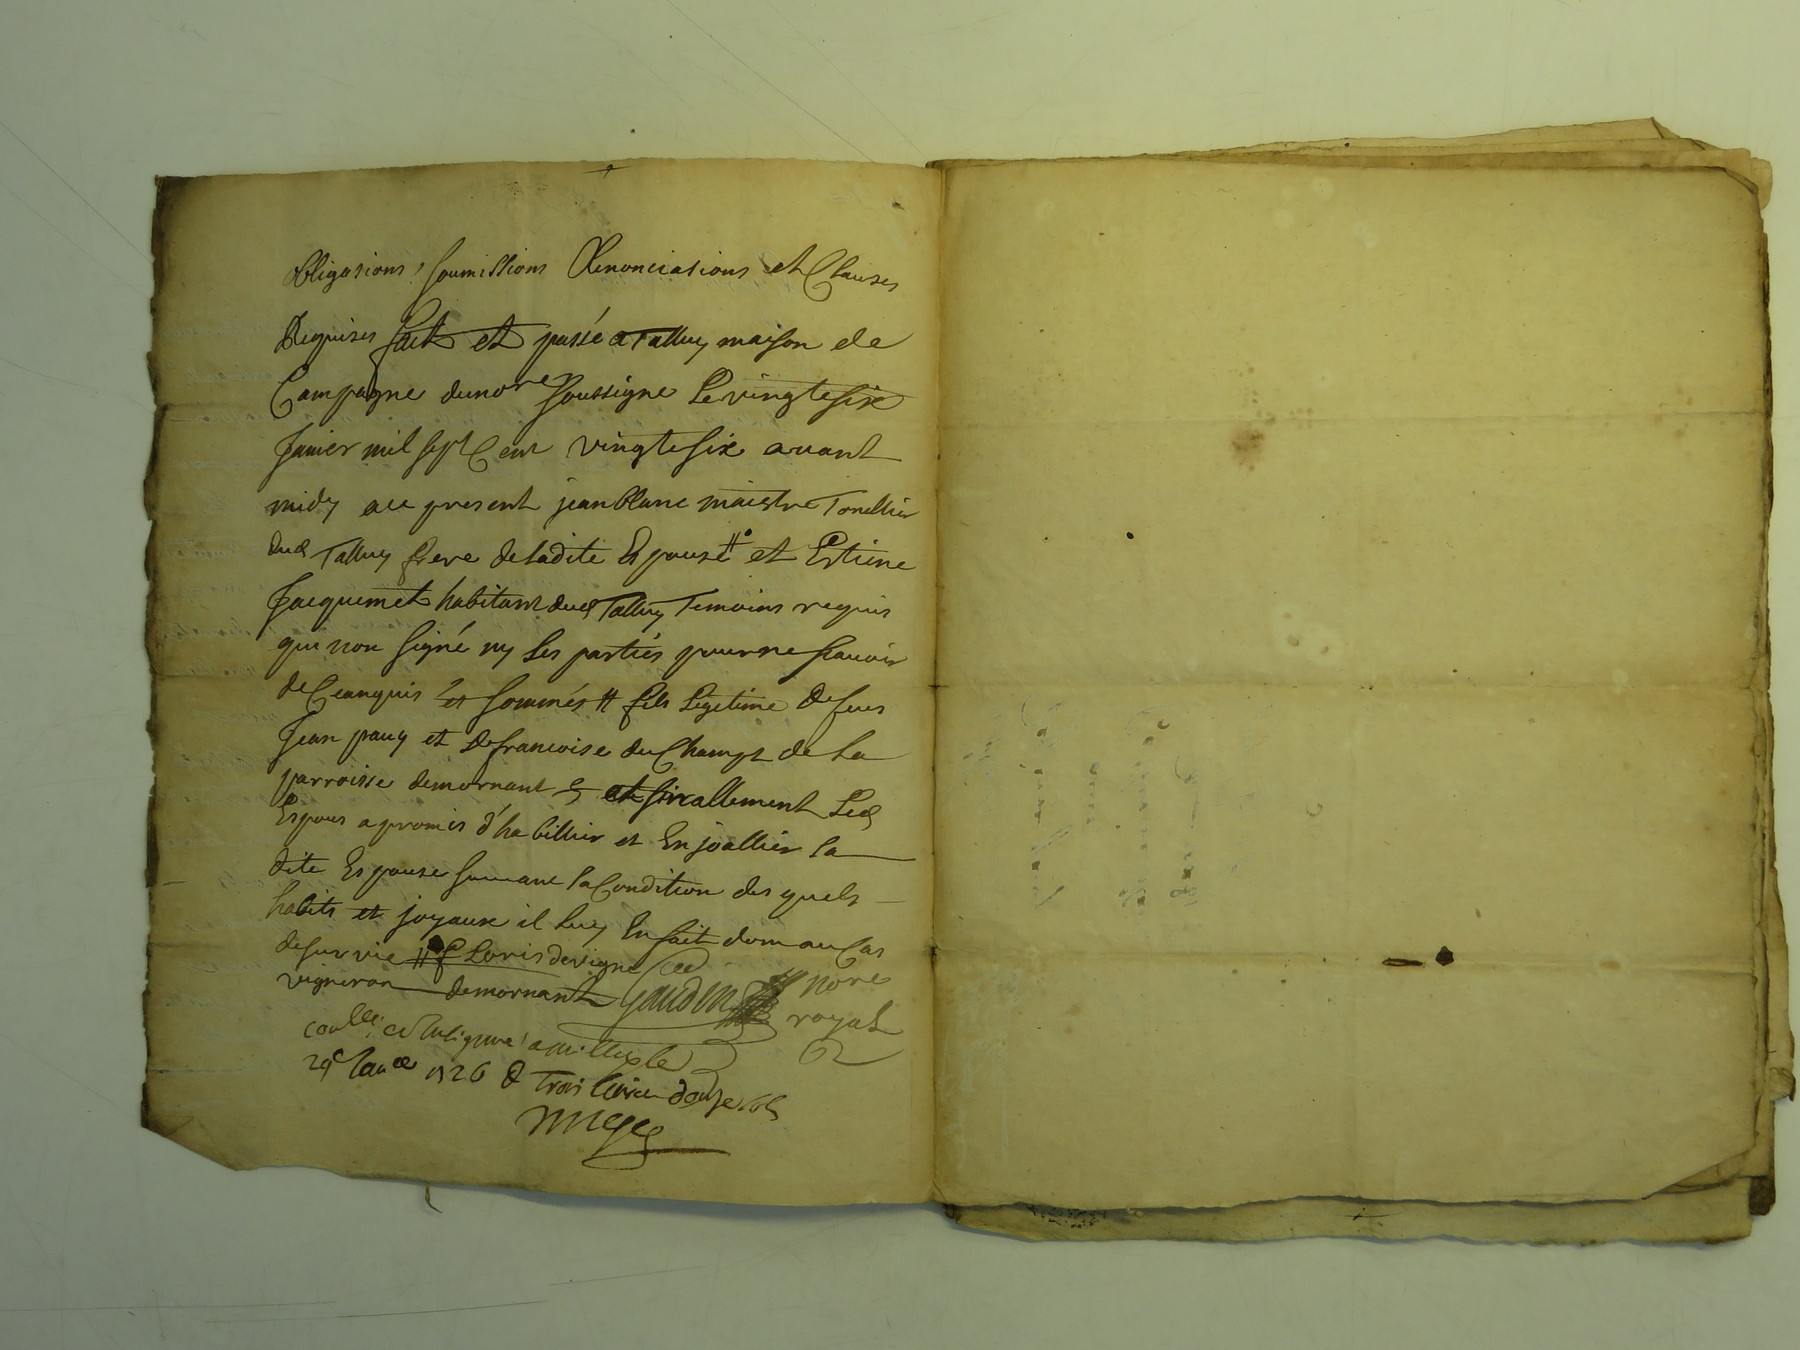 obligasions, soumissions Renonciasions et Clauses
Requises fait et passé a Talluy maison de
Campagne du nore soussigne Le vingte six
Janier mil sept Cent vingte six avant
midy ace present jean blanc maistre Tonellier
dud Talluy frere de ladite Espouse # et Estiene
Jacquemet habitant dud Talluy Temoins requis
qui non signé ny Les partiés pour ne scauoir
de Ceanquis et sommés # fils Legitime De feus
Jean pauy et De francoise du Champt de La
parroisse demornant et Led
Espous a promis d'habillier et Enjoallier la
dite Espouse suiuant la Condition des quels
habits et joyaux il Luy En fait don au Cas
de survie # Loris devigne
vigneron demornant nore
royal
a
29e 1726 Trois livres douze sols